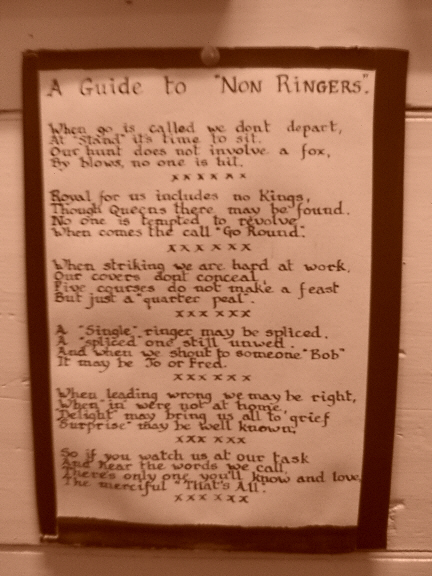 A Guide to "Non Ringers".
When go is called we dont depart,
At "Stand" it's time to sit.
Our hunt does not involve a fox,
By blows, no one is hit.
x x x x x x
Royal for us includes no Kings,
Though Queens there may be found.
No one is tempted to revolve
When comes the call "Go Round".
x x x x x x
When striking we are hard at work,
Our covers dont conceal,
Five courses do not make a feast
But just a "quarter peal".
x x x x x x
A "Single" ringer may be spliced,
A "spliced" one still unwed.
And when we shout to someone "Bob"
It may be Jo or Fred.
x x x x x x
When leading wrong we may be right,
When "in" we're not at home,
"Delight" may bring us all to grief
"Surprise" may be well known.
x x x x x x
So if you watch us at our task
And hear the words we call,
There's only one you'll know and love,
The merciful "That's All".
x x x x x x